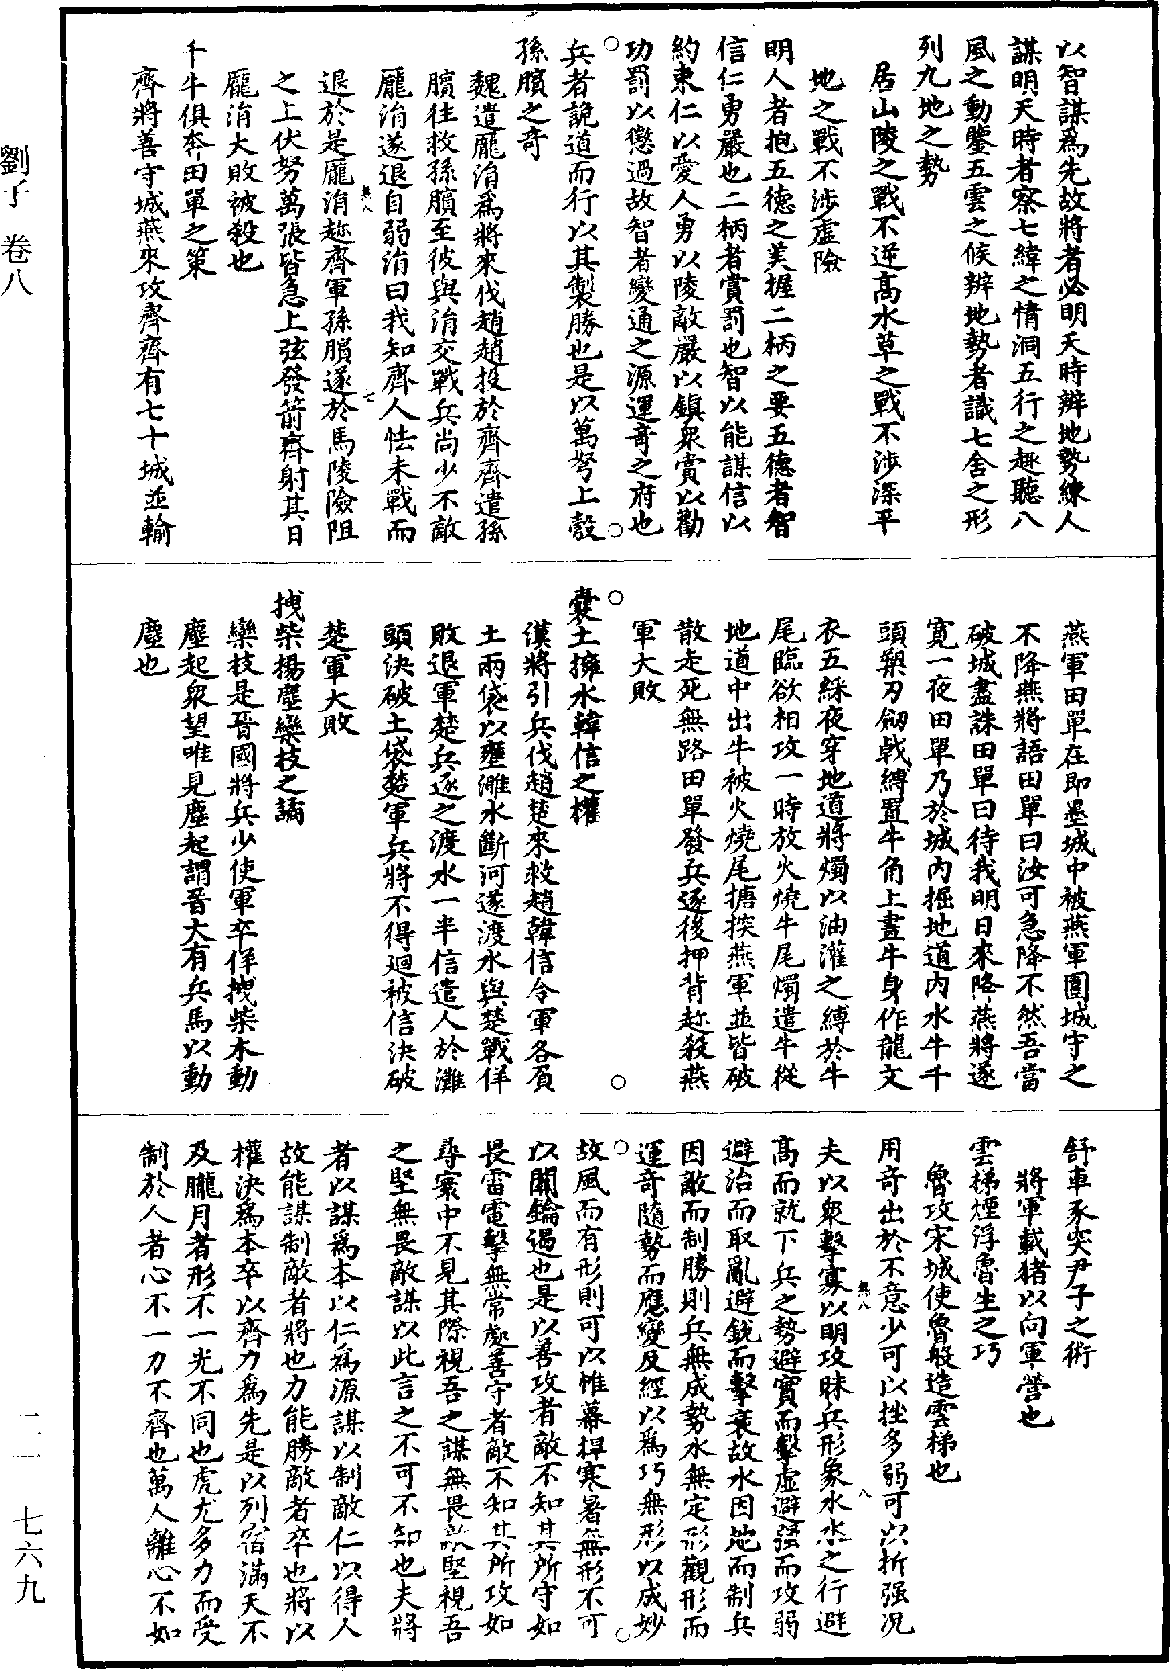 以智謀爲先故將者必明天時辨地勢練人
謀明天時者察七緯之情洞五行之趣聽八
風之動鑒五雲之候辨地勢者識七舍之形
列九地之勢
居山陵之戰不逆高水草之戰不涉深平
地之戰不涉虛險
明人者抱五德之美握二柄之要五德者智
信仁勇嚴也二柄者賞罰也智以能謀信以
約束仁以愛人勇以陵敵嚴以鎮衆賞以勸
功罰以懲過故智者變通之源運奇之府也
兵者詭道而行以其製勝也是以萬弩上彀
孫臏之奇
魏遣龐涓爲將來伐趙趙投於齊齊遣孫
臏往救孫臏至彼與涓交戰兵尚少不敵
龐涓遂退自弱涓曰我知齊人怯未戰而
退於是龐涓趂齊軍孫臏遂於馬陵險阻
之上伏弩萬張皆急上弦發箭齊射其日
龐涓大敗被殺也
千牛俱奔田單之策
齊將善守城燕來攻齊齊有七十城並輸
燕軍田單在即墨城中被燕軍圍城守之
不降燕將語田單曰汝可急降不然吾當
破城盡誅田單曰待我明日來降燕將遂
寬一夜田單乃於城內掘地道內水牛千
頭槊刀劒戟縛置牛角上畫牛身作龍文
衣五綵夜穿地道將燭以油灌之縛於牛
尾臨欲相攻一時放火燒牛尾燭遣牛從
地道中出牛被火燒尾搪揬燕軍並皆破
散走死無路田單發兵逐後押背趂殺燕
軍大敗
囊土擁水韓信之權
漢將引兵伐趙楚來救趙韓信令軍各負
土兩袋以壅濰水斷河遂渡水與楚戰佯
敗退軍楚兵逐之渡水一半信遣人於灘
頭決破土袋楚軍兵將不得廻被信決破
楚軍大敗
拽柴揚塵欒枝之譎
欒枝是晉國將兵少使軍卒佯拽柴木動
塵起衆望唯見塵起謂晉大有兵馬以動
塵也
舒車豕突尹子之術
將軍載猪以向軍營也
雲梯煙浮魯生之巧
魯攻宋城使魯般造雲梯也
用奇出於不意少可以挫多弱可以折强況
夫以衆擊寡以明攻昧兵形象水水之行避
高而就下兵之勢避實而擊虛避强而攻弱
避治而取亂避銳而擊衰故水因地而制兵
因敵而制勝則兵無成勢水無定形觀形而
運奇隨勢而應變反經以爲巧無形以成妙
故風而有形則可以帷幕捍寒暑無形不可
以關鑰遏也是以善攻者敵不知其所守如
畏雷電擊無常處善守者敵不知其所攻如
尋寰中不見其際視吾之謀無畏敵堅視吾
之堅無畏敵謀以此言之不可不知也夫將
者以謀爲本以仁爲源謀以制敵仁以得人
故能謀制敵者將也力能勝敵者卒也將以
權決爲本卒以齊力爲先是以列宿滿天不
及朧月者形不一光不同也虎尤多力而受
制於人者心不一力不齊也萬人離心不如
劉子 卷八
二一 七六九